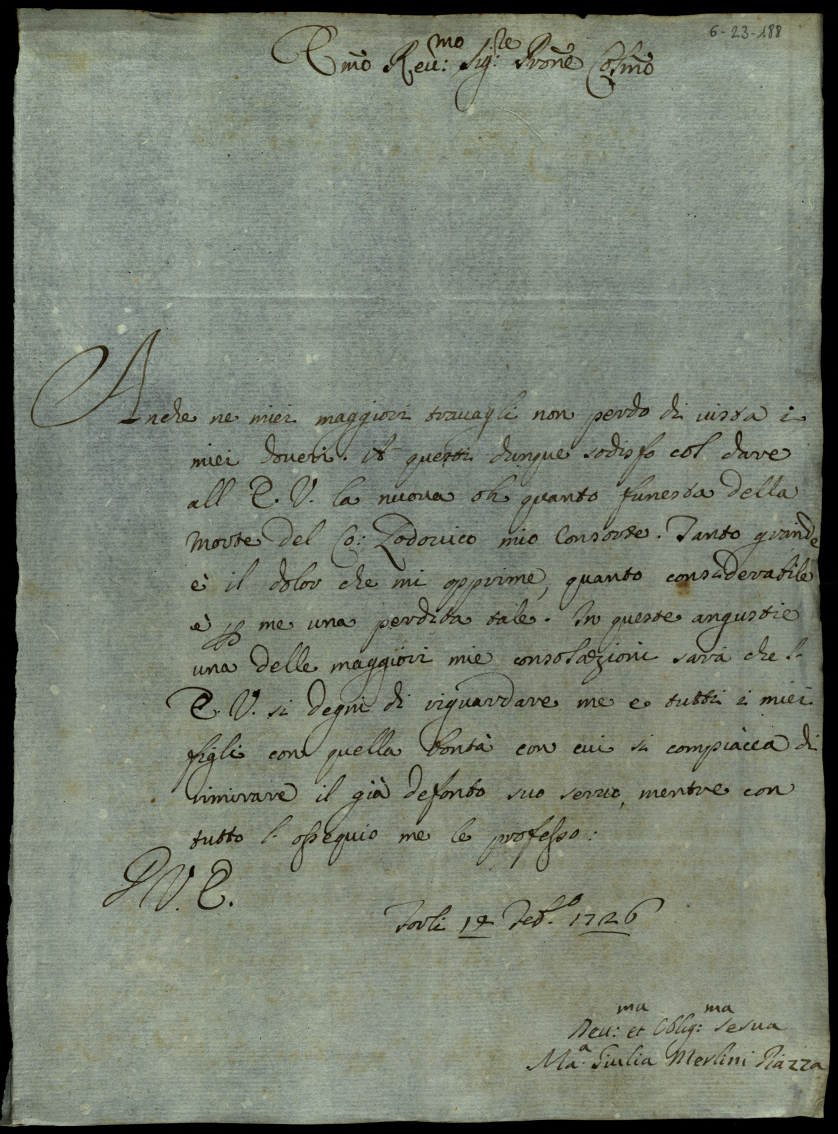 6-23-188
Em̃o Reu:mo Sig:re Pron̄e Col̃mo
Anche ne miei maggiori trauagli non perdo di uista i
miei doueri. A questi dunque sodisfo col dare
all E. V. la nuoua oh quanto funesta della
morte del Co: Lodouico mio Consorte. Tanto grande
è il dolor che mi opprime, quanto considerabile
è p me una perdita tale. In queste angustie
una delle maggiori mie consolazioni sarà che l'
E. V. si degni di riguardare me e tutti i miei
figli con quella bontà con cui si compiacea di
rimirare il già defonto suo seruo, mentre con
tutto l' ossequio me le professo:
D V. E.
Forlì 14 Feb.o 1726
Deu:ma et Oblig:ma Serua
Ma:a Giulia Merlini Piazza